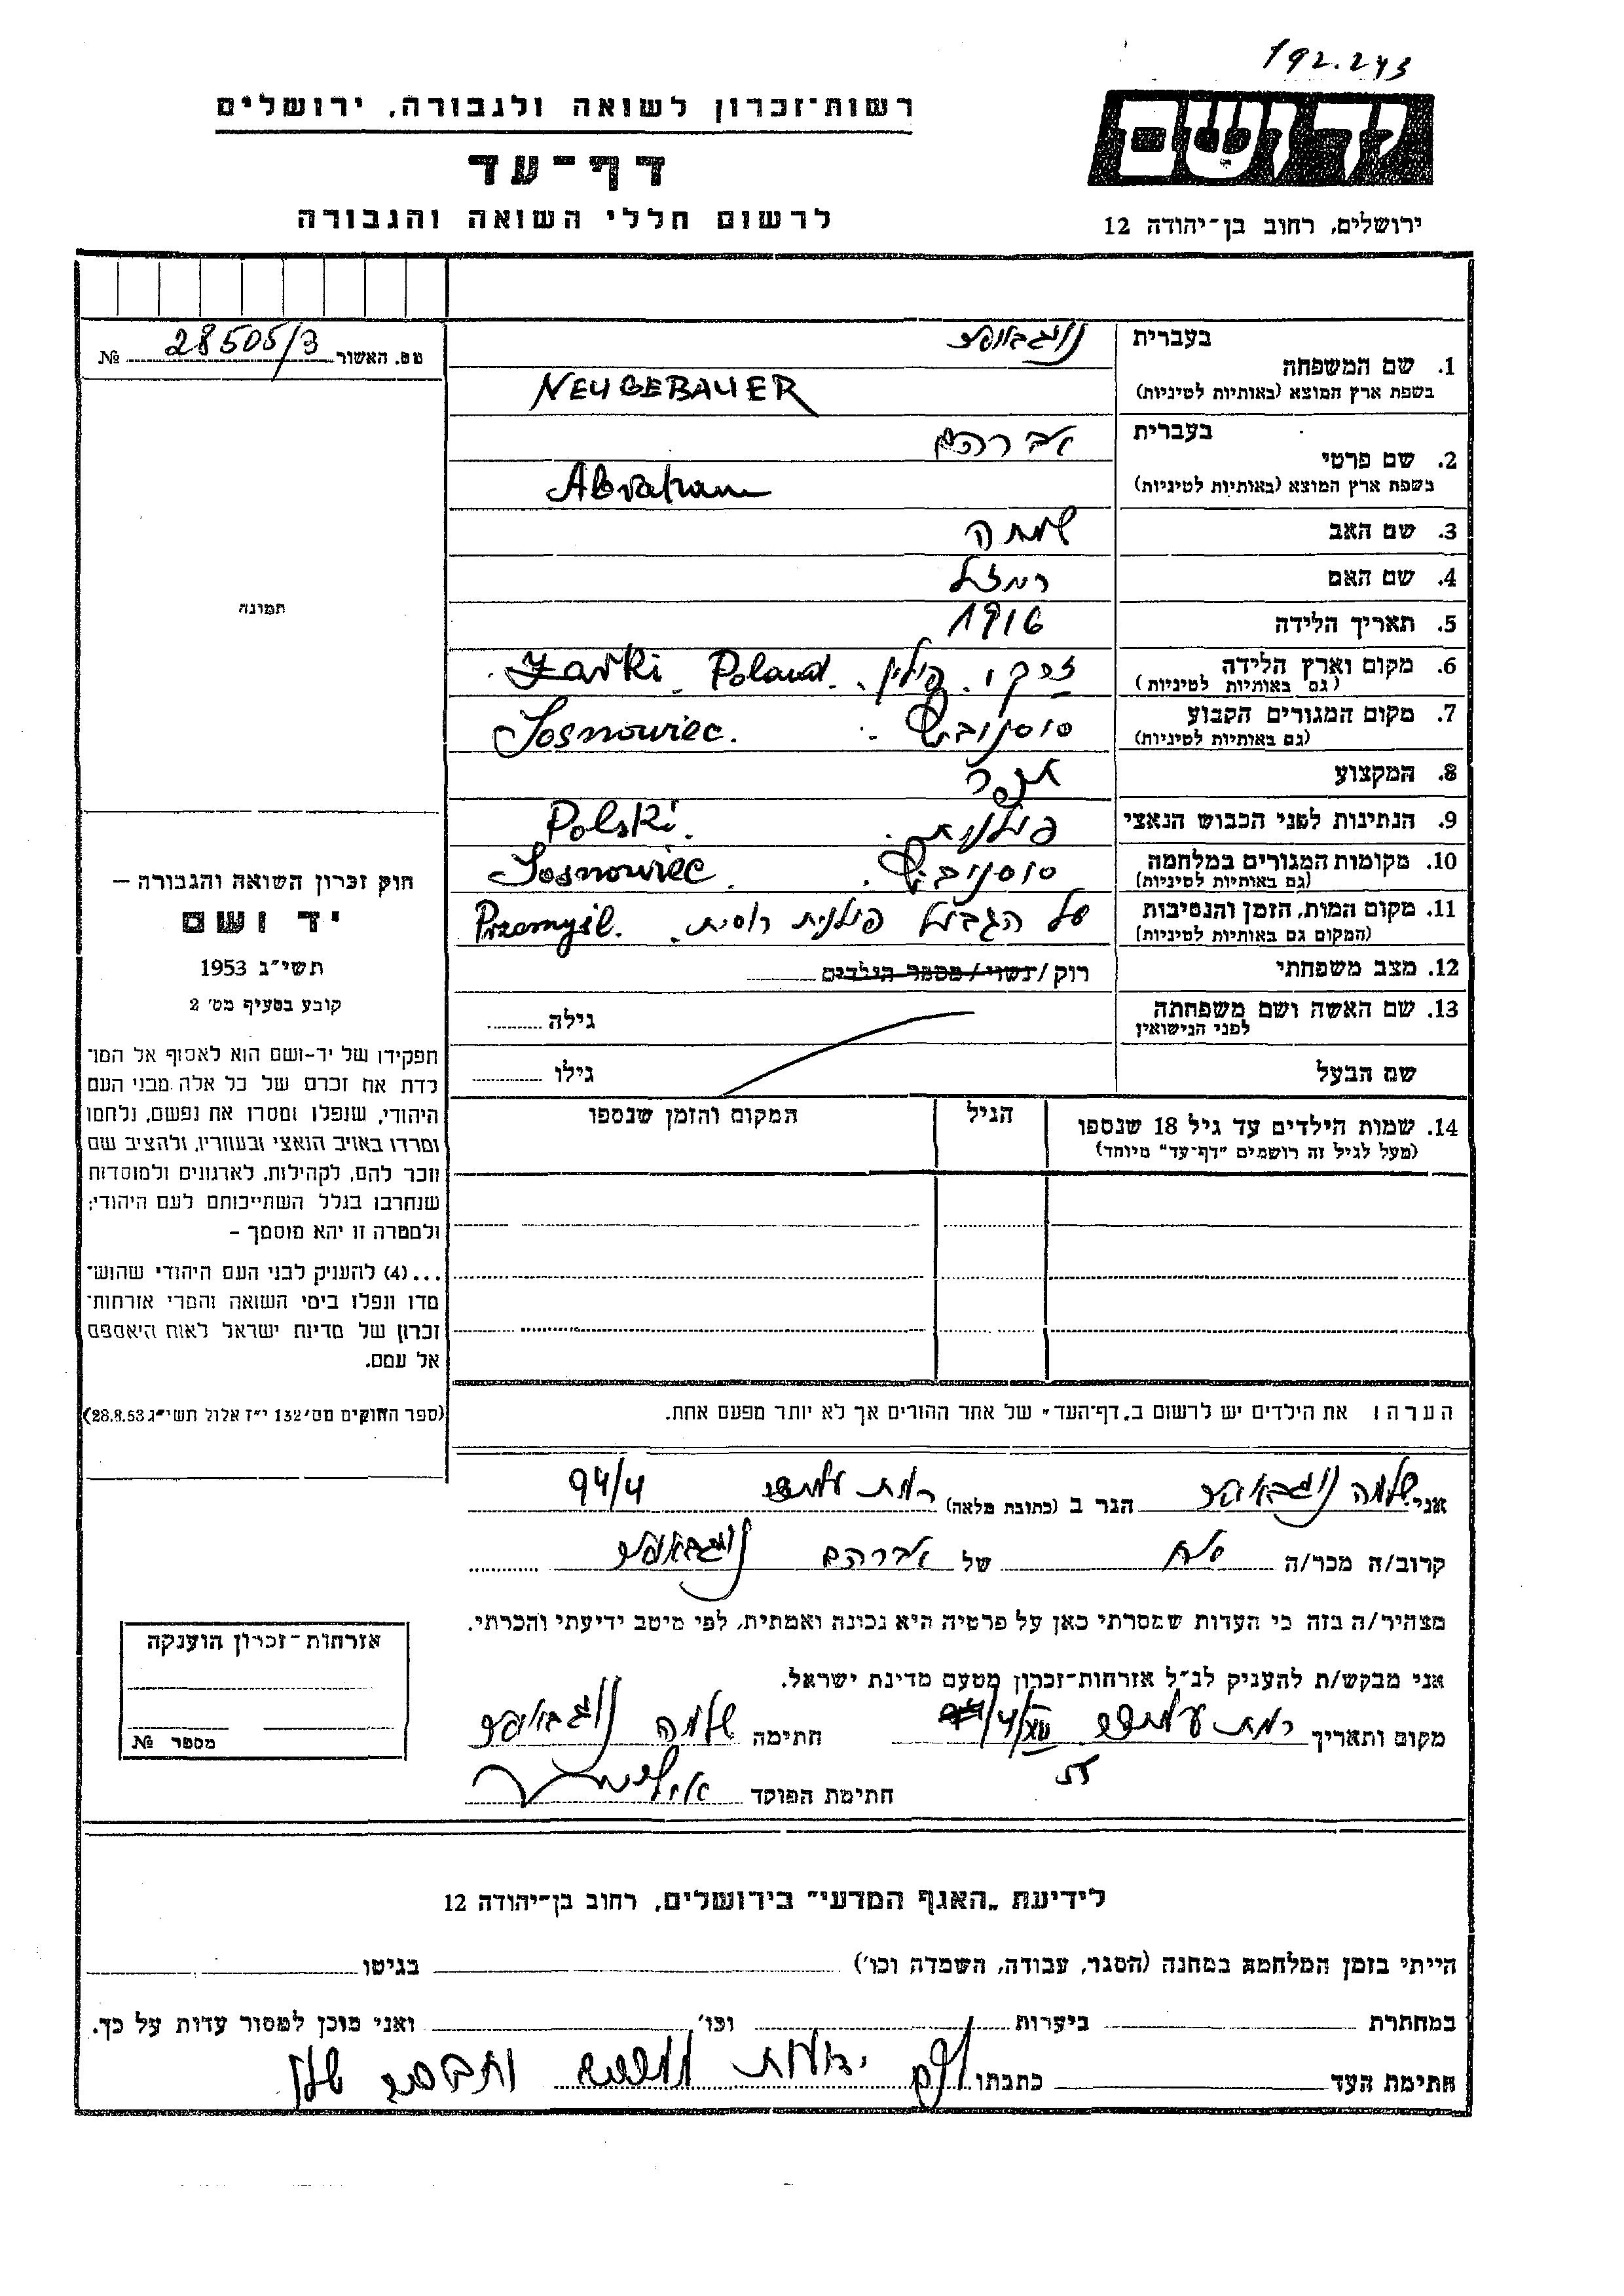 192.243
יד ושם
ירושלים, רחוב בן־יהודה 12
רשות־זכרון לשואה ולגבורה, ירושלים
דף־עד
לרשום חללי השואה והגבורה
מס. האשור 28505/3 №
תמונה
חוק זכרון השואה והגבורה –
יד ושם
תשי״ג 1953
קובע בסעיף מס׳ 2
תפקידו של יד-ושם הוא לאסוף אל המו־
לדת את זכרם של כל אלה מבני העם
היהודי, שנפלו ומסרו את נפשם, נלחמו
ומרדו באויב הנאצי ובעוזריו, ולהציב שם
וזכר להם, לקהילות, לארגונים ולמוסדות
שנחרבו בגלל השתייכותם לעם היהודי;
ולמטרה זו יהא מוסמך –
...(4) להעניק לבני העם היהודי שהוש־
מדו ונפלו בימי השואה והמרי אזרחות־
זכרון של מדינת ישראל לאות היאספם
אל עמם.
(ספר החוקים מס׳ 132 י״ז אלול תשי״ג 28.8.53)
בעברית נויגבאואר
1. שם המשפחה
בשפת ארץ המוצא (באותיות לטיניות) NEUGEBAUER
בעברית אברהם
2. שם פרטי
בשפת ארץ המוצא (באותיות לטיניות) Abraham
3. שם האב שמחה
4. שם האם
5. תאריך הלידה 1916
6. מקום וארץ הלידה זרקי. פולין. Żarki. Poland.
(גם באותיות לטיניות)
7. מקום המגורים הקבוע סוסנוביץ. Sosnowiec.
(גם באותיות לטיניות)
8. המקצוע
9. הנתינות לפני הכבוש הנאצי פולנית. Polski.
10. מקומות המגורים במלחמה סוסנוביץ. Sosnowiec.
(גם באותיות לטיניות)
11. מקום המות, הזמן והנסיבות על הגבול פולנית רוסית. Przemyśl.
(המקום גם באותיות לטיניות)
12. מצב משפחתי רוק/נשוי/מספר הילדים
13. שם האשה ושם משפחתה גילה
לפני הנישואין
שם הבעל גילו
14. שמות הילדים עד גיל 18 שנספו הגיל המקום והזמן שנספו
(מעל לגיל זה רושמים "דף־עד" מיוחד)
הערה: את הילדים יש לרשום ב„דף־העד" של אחד ההורים אך לא יותר מפעם אחת.
אני שלמה נויגבאואר הגר ב (כתובת מלאה) רמת עמידר 94/4
קרוב/ה מכר/ה אח של אברהם נויגבאואר
מצהיר/ה בזה כי העדות שמסרתי כאן על פרטיה היא נכונה ואמתית, לפי מיטב ידיעתי והכרתי.
אני מבקש/ת להעניק לנ״ל אזרחות־זכרון מטעם מדינת ישראל.
מקום ותאריך רמת עמידר חתימה שלמה נויגבאואר
חתימת הפוקד
אזרחות־זכרון הוענקה
מספר №
לידיעת „האגף המדעי" בירושלים, רחוב בן־יהודה 12
הייתי בזמן המלחמה במחנה (הסגר, עבודה, השמדה וכו׳) בגיטו
במחתרת ביערות וכו׳ ואני מוכן למסור עדות על כך.
חתימת העד כתבתו